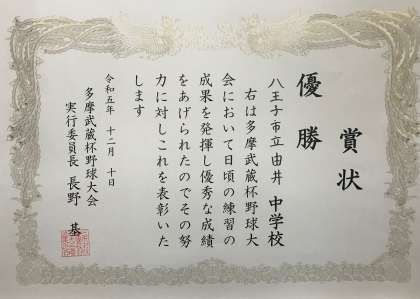 賞状
優勝
八王子市立 由井 中学校
右は多摩武蔵杯野球大
会において日頃の練習の
成果を発揮し優秀な成績
をあげられたのでその努
力に対しこれを表彰いた
します
令和五年 十二月 十日
多摩武蔵杯野球大会
実行委員長 長野 基